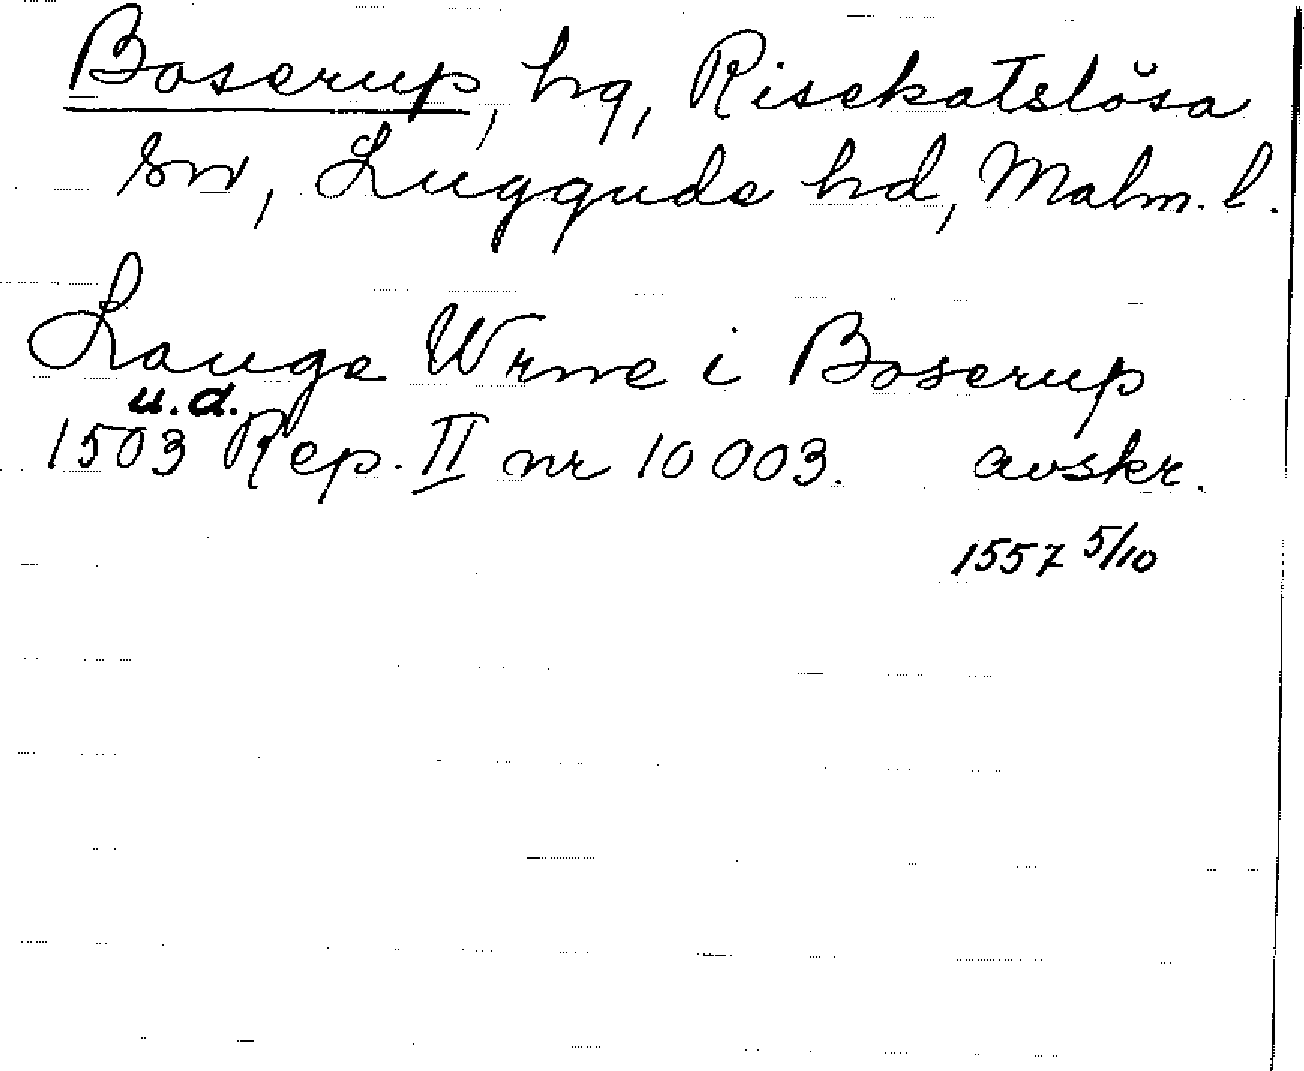 Boserup, hg, Risekatslösa
sn, Luggude hd, Malm. l.
Lauge Wrne i Boserup
u.d.
1503 Rep. II nr 10 003. avskr.
1557 5/10